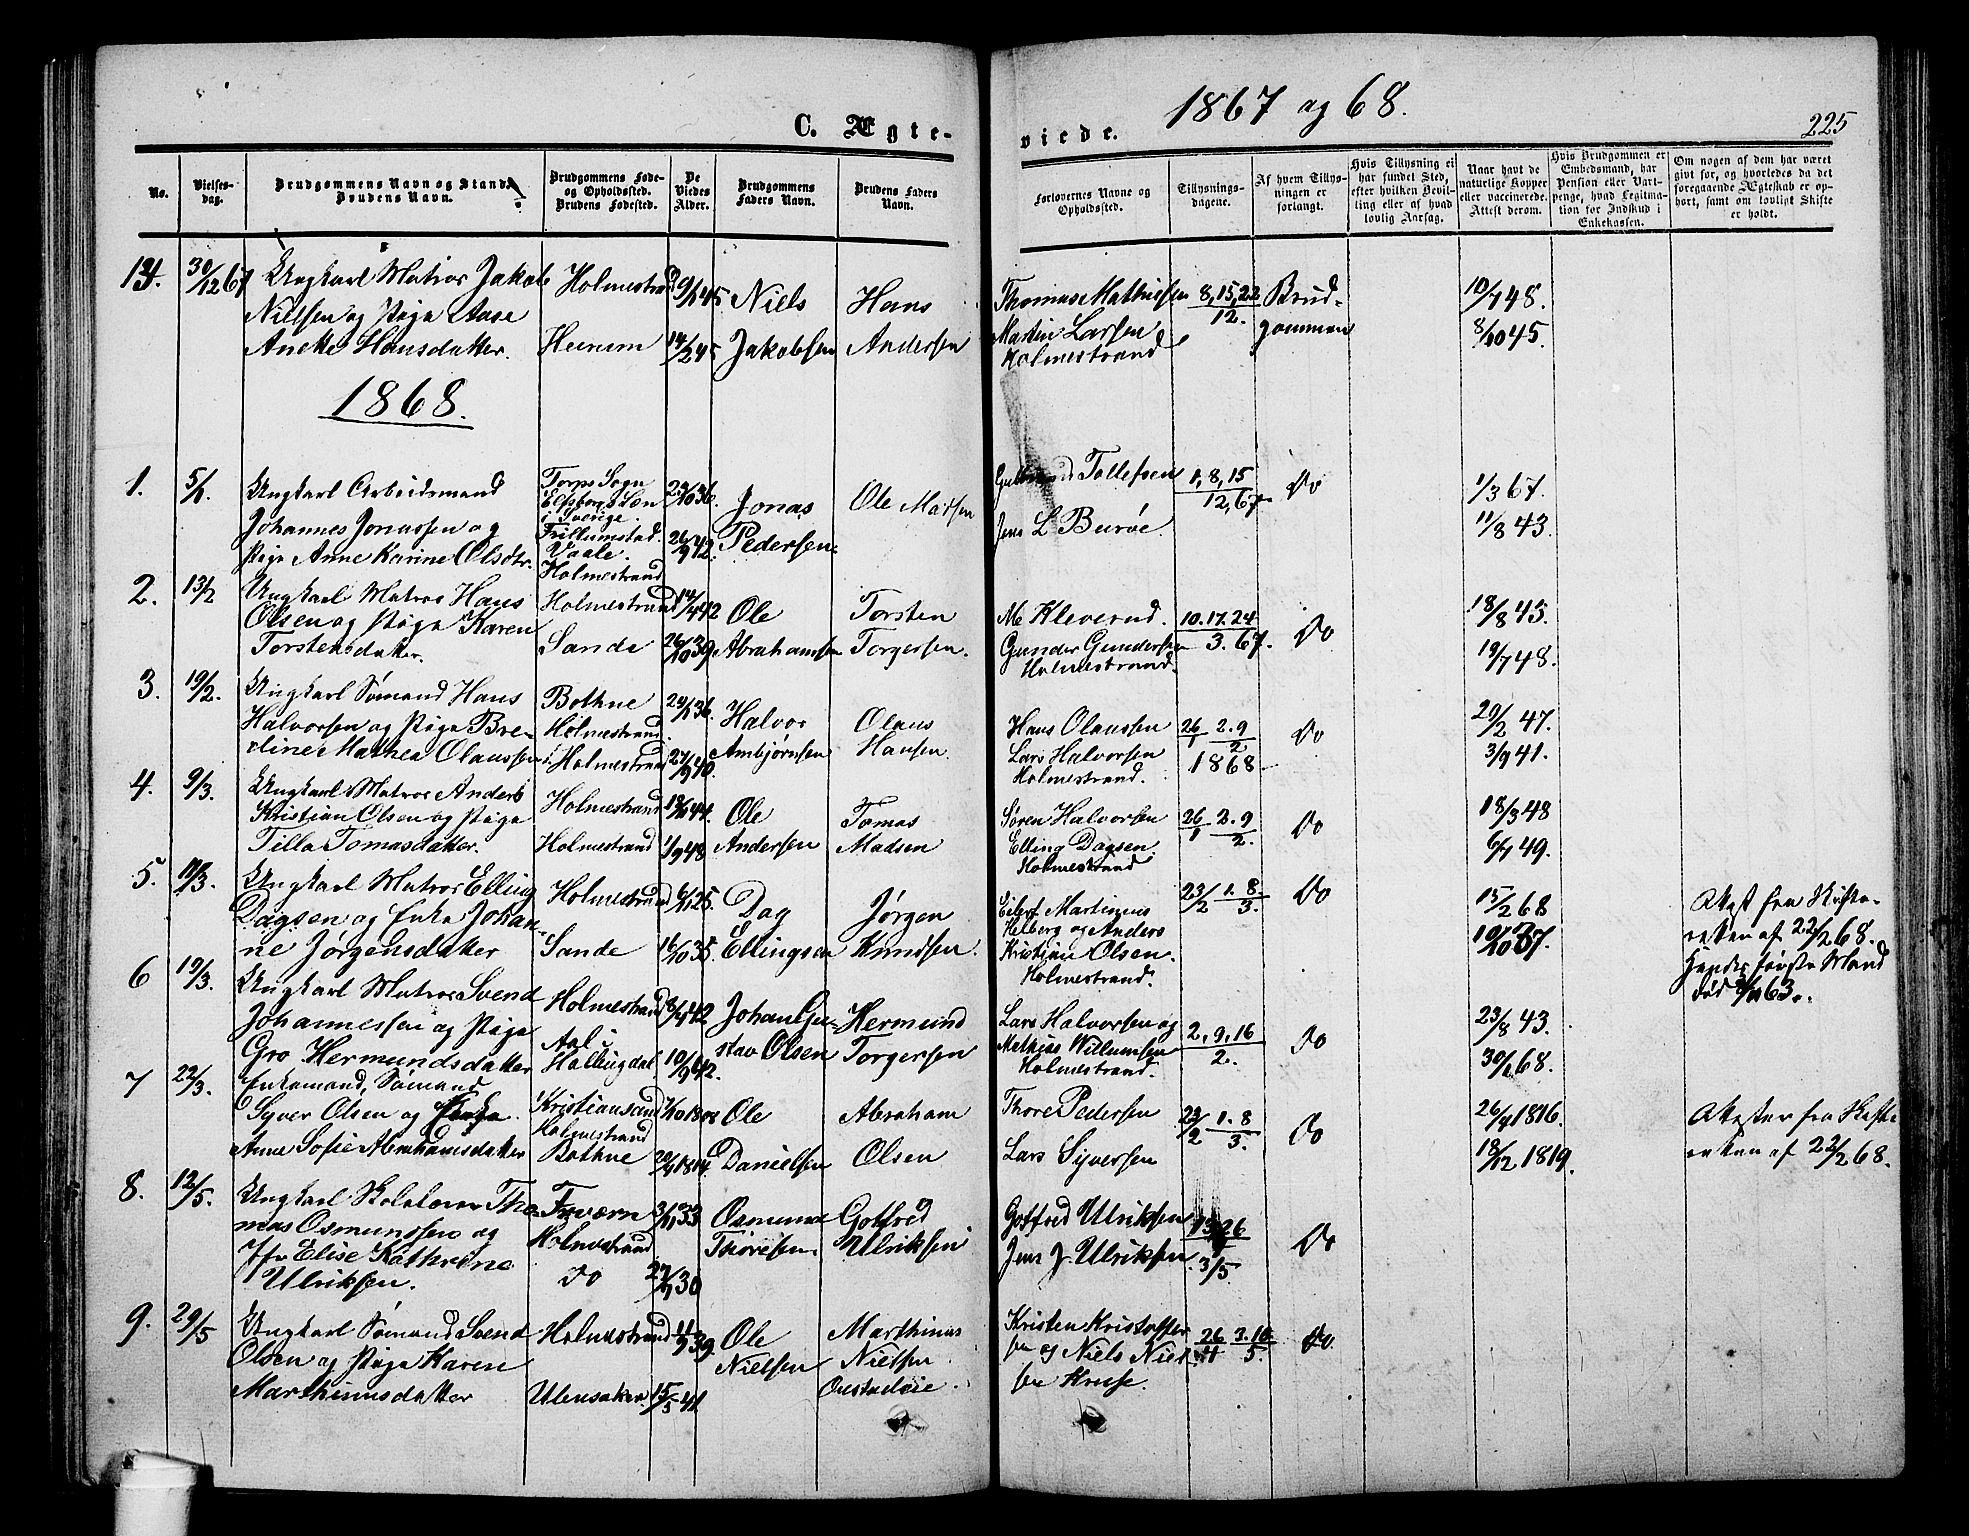 1867 og 68.
225
C. Ægte-
viede.
No.
Vielses-
dag.
Brudgommens Navn og Stand.
Brudens Navn.
Brudgommens Føde-
og Opholdssted.
Brudens Fødested.
De
Viedes
Alder.
Brudgommens
Faders Navn.
Brudens Faders
Navn.
Forlovernes Navne og
Opholdssted.
Tillysnings-
dagene.
Af hvem Tillys-
ningen er
forlangt.
Hvis Tillysning ei
har fundet Sted,
efter hvilken Bevil-
ling eller af hvad
lovlig Aarsag.
Naar havt de
naturlige Kopper
eller vaccinerede.
Attest derom.
Hvis Brudgommen er
Embedsmand, har
Pension eller Vart-
penge, hvad Legitima-
tion for Indskud i
Enkekassen.
Om nogen af dem har været
gift før, og hvorledes da det
foregaaende Ægteskab er op-
hørt, samt om lovligt Skifte
er holdt.
30/12 67
Ungkarl Matros Jakob
Nielsen og Pige Aase
Anette Hansdatter.
Holmestrand
14/2 45
Niels
Jakobsen
Hans
Andersen
Thomas Mathissen
Martin Larsen
Holmestrand
8, 15, 22
12.
Brud-
gommen
10/7 48.
8/10 45.
1868.
1. 5/1.
Ungkarl Arbeidsmand
Johannes Jonassen og
Pige Anne Karine Olsdtr.
Torps Sogn
i Sverige
Vaale.
Holmestrand
26/9 42.
Jonas
Pedersen
Ole Matsen
Tollefsen
Jens L Buröe.
1, 8, 15
12, 67
Do
1/3 67.
11/8 43.
2. 13/2
Ungkarl Matros Hans
Olsen og Pige Karen
Torstensdatter.
Holmestrand
Sande
14/4 42
26/10 39
Ole
Abrahamsen
Torsten
Torgersen.
M Kleverud.
Gunder Gundersen
Holmestrand.
10. 17. 24
3. 67.
Do
18/8 43.
19/7 48.
3. 19/2.
Ungkarl Sømand Hans
Halvorsen og Pige Bre-
dine Mathea Olaussen
Bothne
Holmestrand.
Holmestrand
27/9 40.
Halvor
Ambjørnsen
Olaus
Hansen.
Hans Olaussen
Lars Halvorsen
Holmestrand.
26/1 2. 9/2
1868
Do
20/2 47.
3/9 41.
4. 9/3.
Ungkarl Matros Anders
Kristian Olsen og Pige
Tilla Tomasdatter.
Holmestrand
Holmestrand
1/9 48
Ole
Andersen
Tomas
Madsen
Søren Halvorsen
Elling Dagsen.
Holmestrand
26/1 2. 9/2.
Do
18/3 48
6/7 49.
5. 11/3.
Ungkarl Matros Elling
Dagsen og Enke Johan-
ne Jørgensdatter
Holmestrand
Sande
6/11 25.
16/10 35
Dag
Ellingsen
Jørgen
Knudsen.
Eilert Martinius
Helberg og Anders
Kristian Olsen.
Holmestrand.
23/2 1. 8/3.
Do
15/2 68
Attest fra Skifte-
retten af 22/2 68.
Hendes første Mand
død 63.
6 19/3.
Ungkarl Matros Svend
Johannessen og Pige
Gro Hermundsdatter
Holmestrand
Aal i
Hallingdal
8/4 42
10/9 42.
Johan Gu-
stav Olsen
Hermund
Torgersen
Lars Halvorsen og
Mathias Willumsen
Holmestrand.
2, 9, 16
2.
Do
23/8 43.
30/1 68.
7 22/3.
Enkemand, Sømand
Syver Olsen og Enke
Anne Sofie Abrahamsdatter
Kristiansand
Holmestrand
Bothne
1808
1814.
Ole
Danielsen
Abraham
Olsen
Thore Pedersen
Lars Syversen
23/2 1. 8/3.
Do
26/4 1816.
18/12 1819.
Attester fra Skifte
retten af 22/2 68.
8. 12/5.
Ungkarl Skolelærer Tho-
mas Osmundsen og
Jfr Elise Kathrine
Ulriksen.
Holmestrand
Do
3/11 33
30
Osmund
Thoresen.
Gotfred
Ulriksen
Gotfred Ulriksen
Jens J. Ulriksen.
26
3/5.
Do
9. 29/5
Ungkarl Sømand Svend
Olsen og Pige Karen
Marthinusdatter
Holmestrand
Ulensaker
11/9 39
15/3 41
Ole
Nielsen
Marthinus
Nielsen
Kristen Kristoffer
sen og Niels Niel
sen Kruse.
26/4 3. 10/5.
Do.